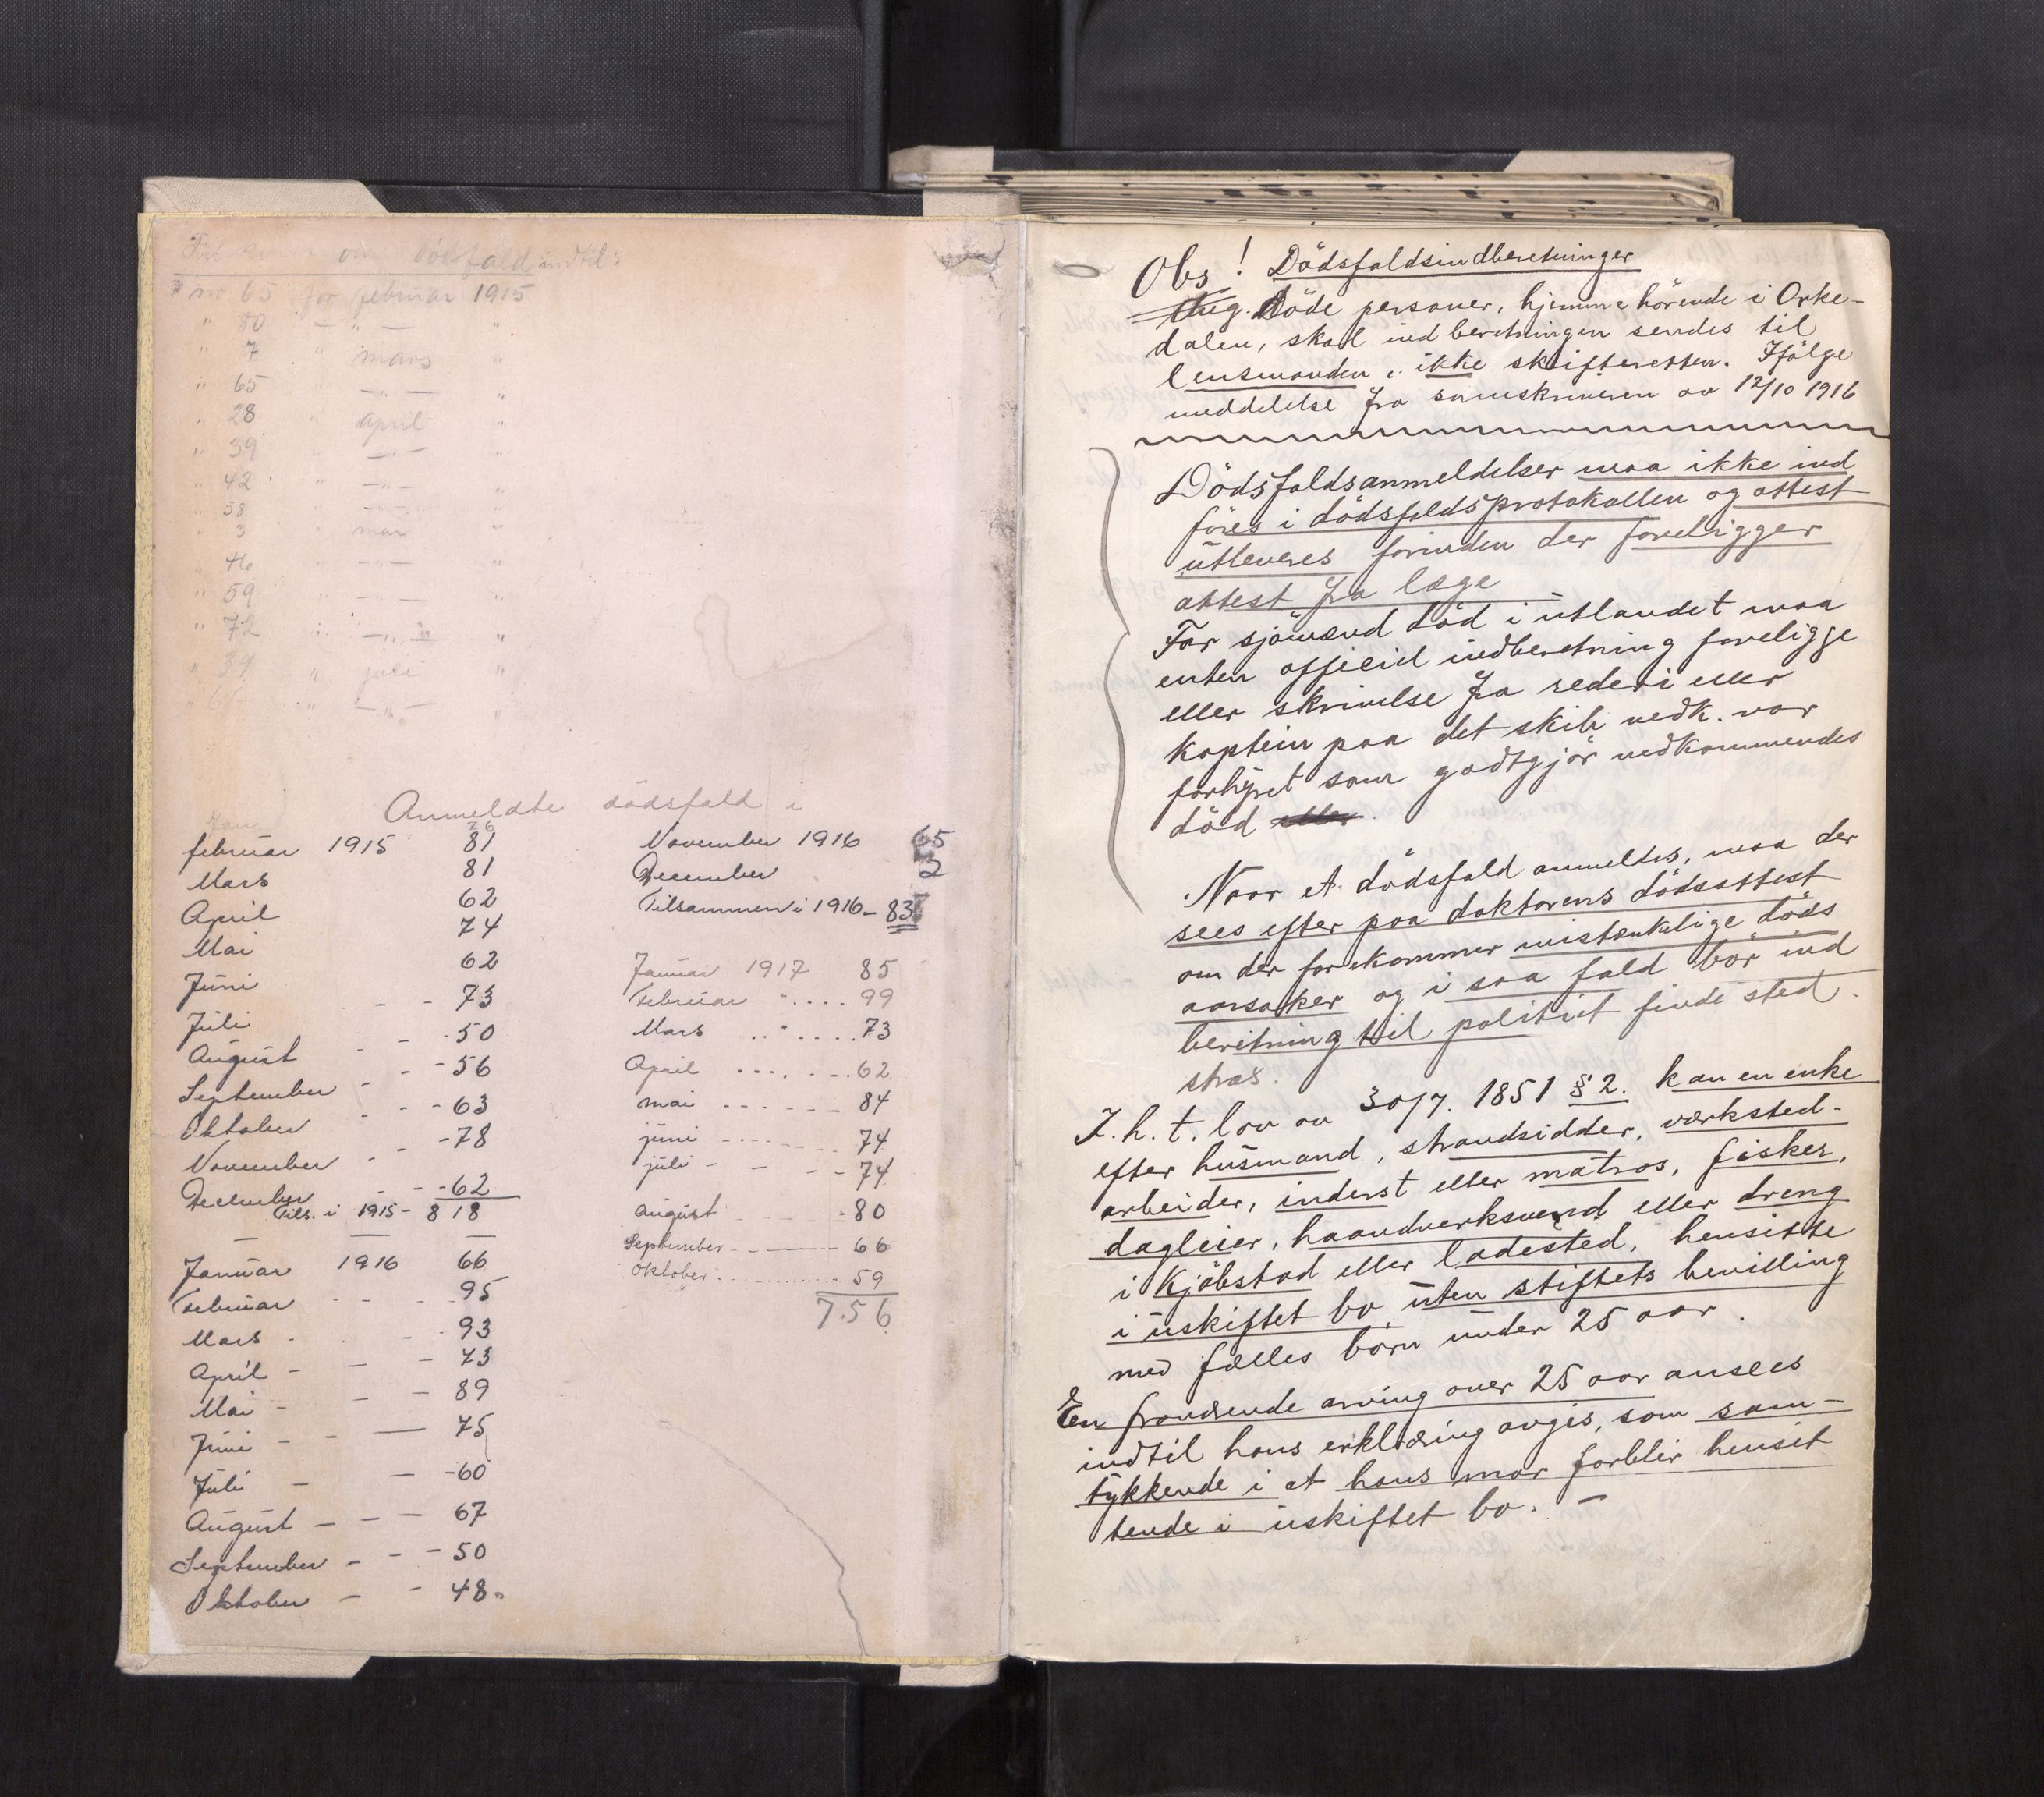 dödsfald indtil:
nr. 65 for februar 1915
" 80 " — " — "
" 7 " mars "
" 65 " — " — "
" 28 " april "
" 39 " — " — "
" 42 " — " — "
58 — " — "
" 3 " mai "
" 46 " — " — "
" 59 " — " — "
" 72 " — " — "
" 39 " juli "
" — " — "
Anmeldte dödsfald i
Jan 76
februar 1915 81
Mars 81
April 62
Mai 74
Juni 62
Juli - - 73
August - - 50
September - - - 56
Oktober - - - 63
November - - - 78
December - - - 62
Tils. i 1915 - 818
Januar 1916 66
Februar - - - 95
Mars - - - 93
April - - - 73
Mai - - - 89
Juni - - — 75
Juli - - 60
August - - - 67
September - - - 50
Oktober - - 48
November 1916 65
December
Tilsammen i 1916 - 83
Januar 1917 85
Februar " .... 99
Mars .." .... 73
April .... ... 62
mai ...... 84
juni ...... 74
juli - - - - 74
August - 80
September - - 66
Oktober ........... 59
7.56
Obs! Dödsfaldsindberetninger
Döde personer, hjemmehörende i Orke-
dalen, skal indberetningen sendes til
lensmanden, ikke skifteretten. Ifölge
meddelelse fra sorenskriveren av 12/10 1916
Dödsfaldsanmeldelser maa ikke ind
föres i dödsfaldsprotokollen og attest
utleveres forinden der foreligger
attest fra læge
For sjömænd död i utlandet maa
enten officiel indberetning foreligge
eller skrivelse fra rederi eller
kaptein paa det skib vedk. var
forhyret som godtgjör vedkommendes
död eller.
Naar et dödsfald anmeldes, maa der
sees efter paa doktorens dödsattest
om der forekommer mistænkelige döds
aarsaker og i saa fald bör ind
beretning til politiet finde sted
strax.
I. h. t. lov av 30/7. 1851 § 2. kan en enke
efter husmand, strandsidder, værksted-
arbeider, inderst eller matros, fisker,
dagleier, haandverksvend eller dreng
i kjöbstad eller ladested, hensitte
i uskiftet bo uten stiftets bevilling
med fælles barn under 25 aar.
En fraværende arving over 25 aar ansees
indtil hans erklæring avgis, som sam-
tykkende i at hans mor forblir hensit
tende i uskiftet bo. —